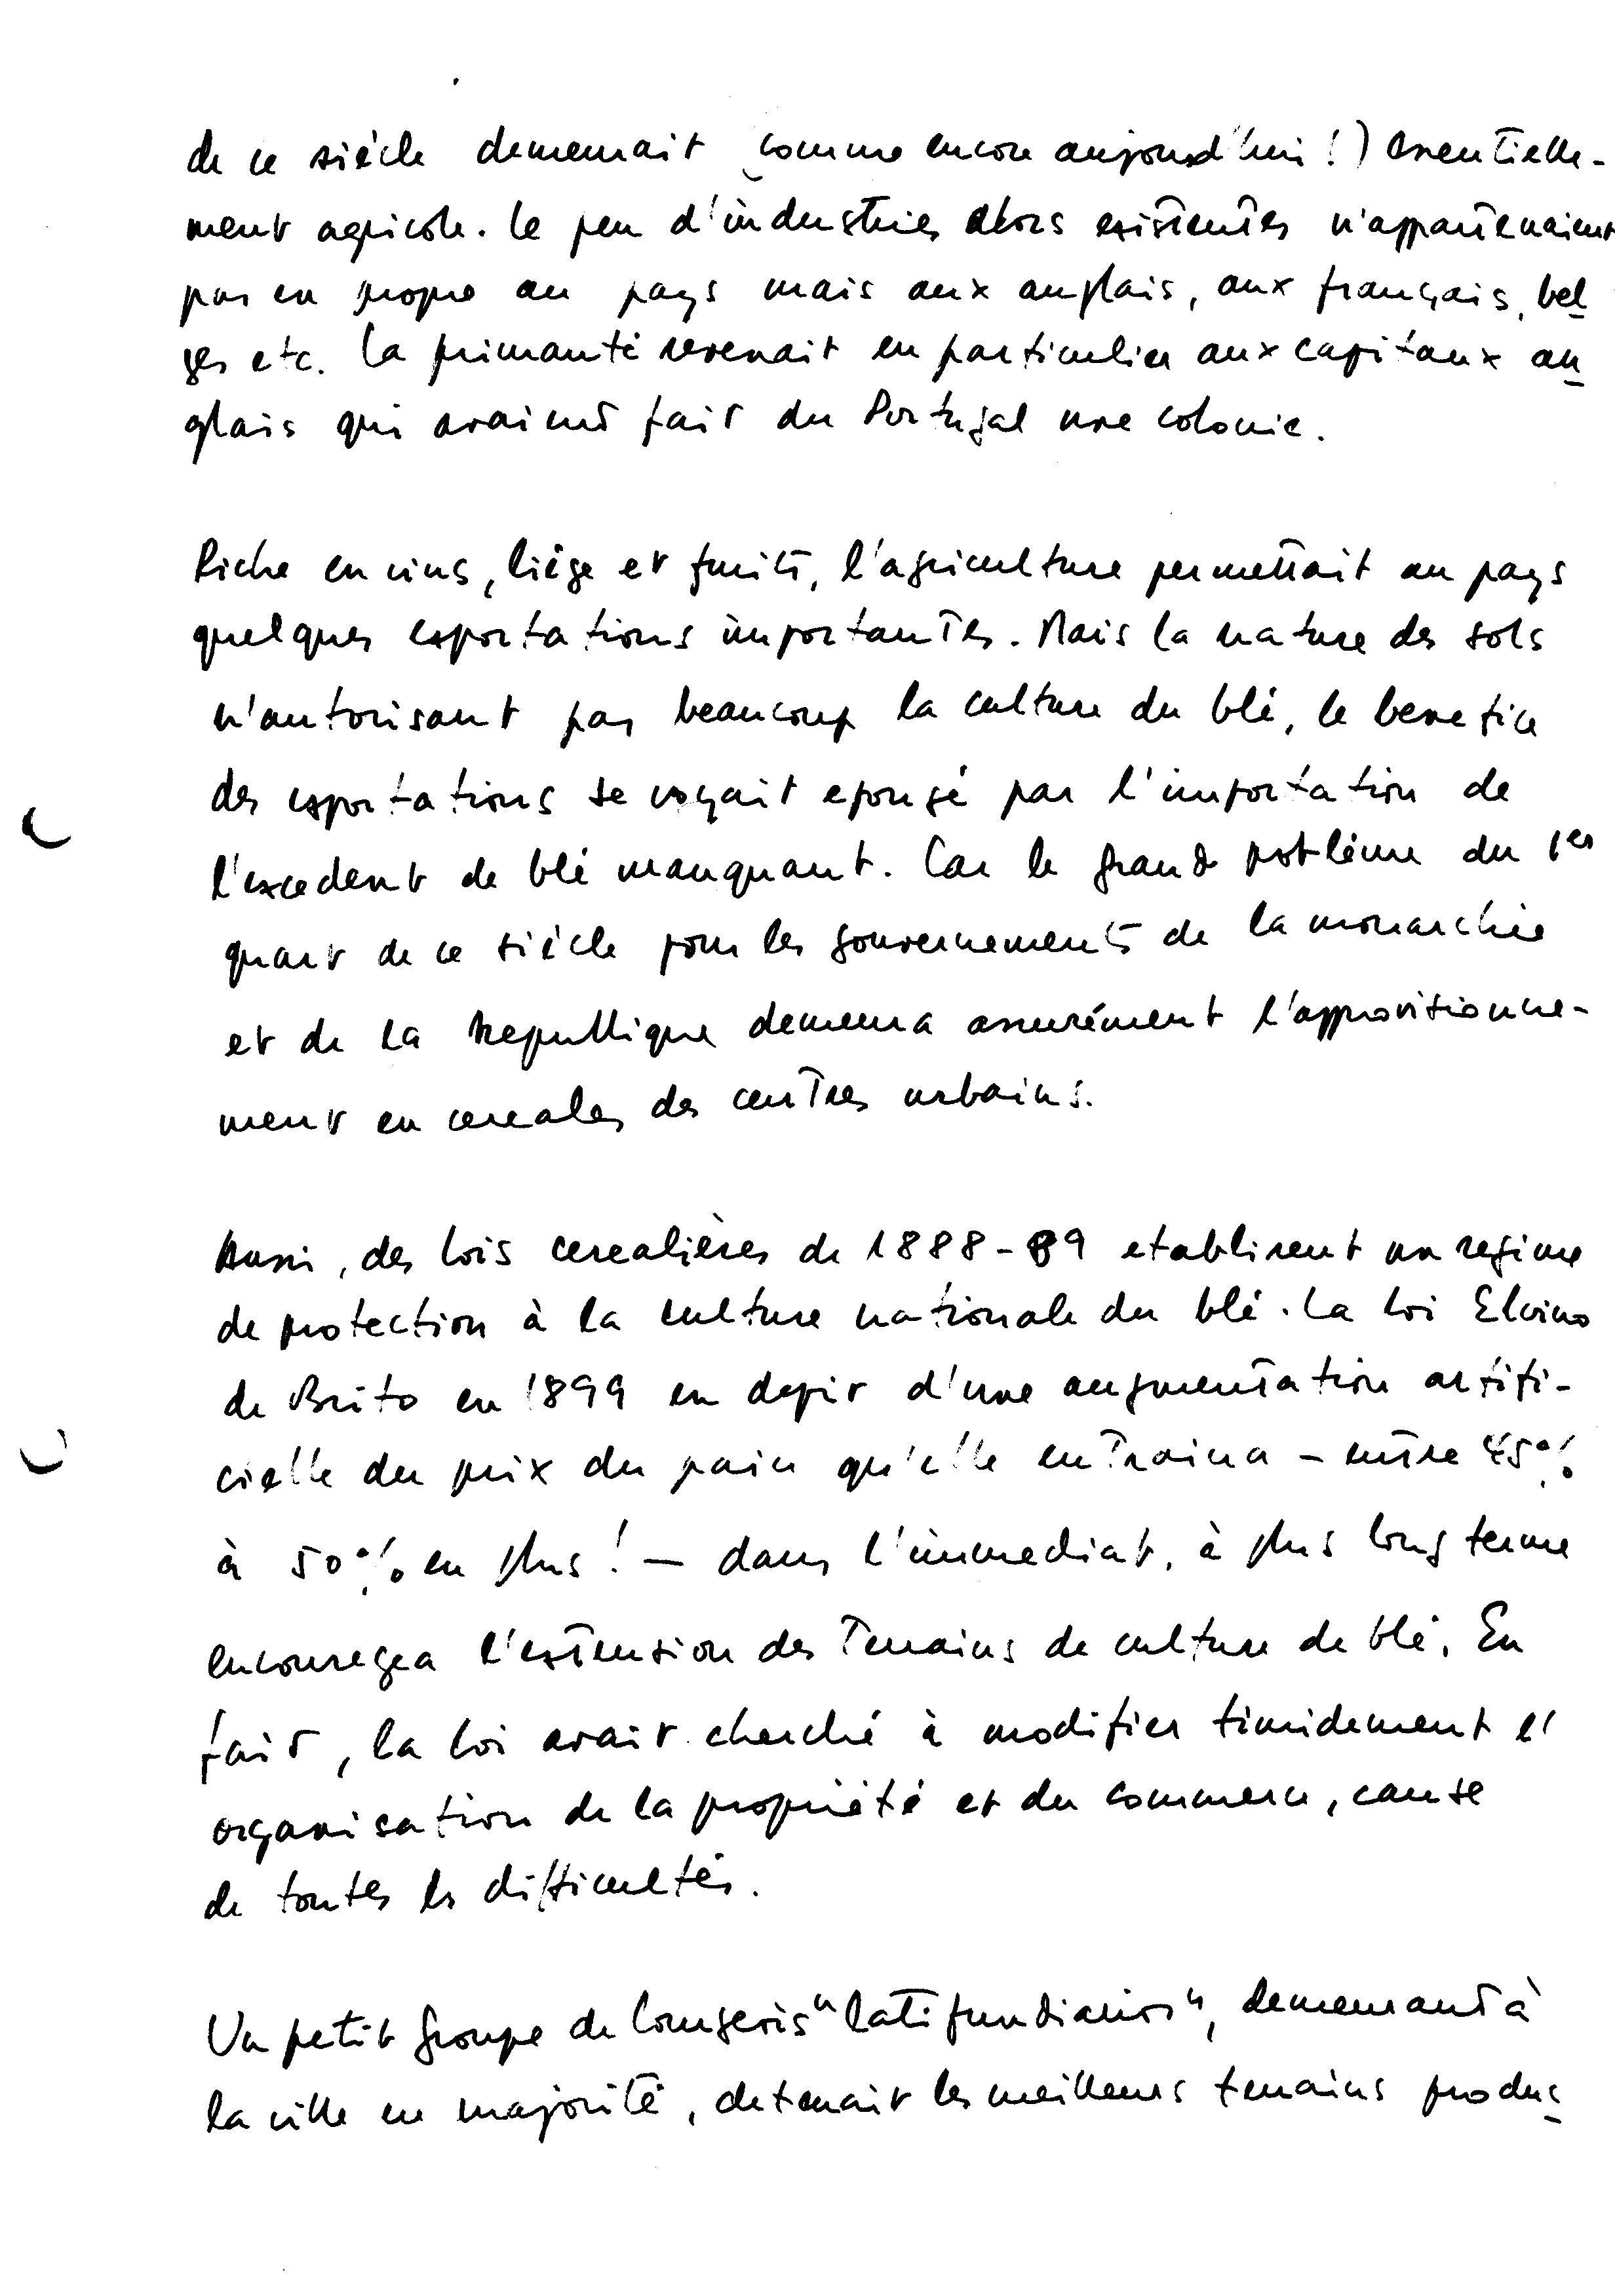 de ce siècle demeurait (comme encore aujourd'hui !) essentielle-
ment agricole. Le peu d'industries alors existentes n'appartenaient
pas en propre au pays mais aux anglais, aux français, bel
ges etc. La primauté revenait en particulier aux capitaux an
glais qui avaient fait du Portugal une colonie.
Riche en vins, liège et fruits, l'agriculture permettait au pays
quelques esportations importantes. Mais la nature des sols
n'autorisant pas beaucoup la culture du blé, le benefice
des esportations se voyait epongé par l'importation de
l'excedent de blé manquant. Car le grand problème du 1er
quart de ce siècle pour les gouvernements de la monarchie
et de la Republique demeura assurément l'approvisionne-
ment en cereales des centres urbains.
Aussi, des lois cerealières de 1888-89 etablirent un regime
de protection à la culture nationale du blé. La loi Elvino
de Brito en 1899 en depit d'une augmentation artifi-
cielle du prix du pain qu'elle entraina - entre 45%
à 50% en plus ! - dans l'immediat, à plus long terme
encouragea l'estension des terrains de culture de blé. En
fait, la loi avait cherché à modifier timidement l'
organisation de la propriété et du commerce, cause
de toutes les difficultés.
Un petit groupe de "latifundiarios", demeurant à
la ville en majorité, detenait les meilleurs terrains produc